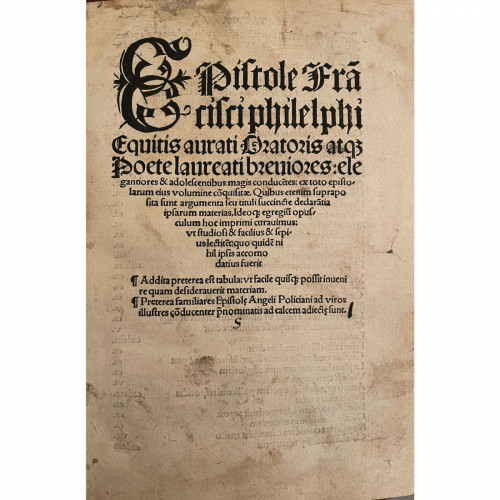 Epistole Frã
cisci philelphi
Equitis aurati Oratoris atqꝫ
Poete laureati breuiores: ele
gantiores & adolescentibus magis conducẽtes: ex toto episto-
larum eius volumine cõquisitæ. Quibus etenim suprapo
sita sunt argumenta seu tituli succincte declarãtia
ipsarum materias. Ideoqꝫ egregiũ opus/
culum hoc imprimi curauimus:
vt studiosi & facilius & sepi/
us lectitẽt: quo quidẽ ni
hil ipsis accomo
datius fuerit
¶ Addita preterea est tabula: vt facile quisqꝫ possit inueni
re quam desiderauerit materiam.
¶ Preterea familiares Epistolę Angeli Policiani ad viros
illustres cõducenter p̃nominatis ad calcem adiectę sunt.
S